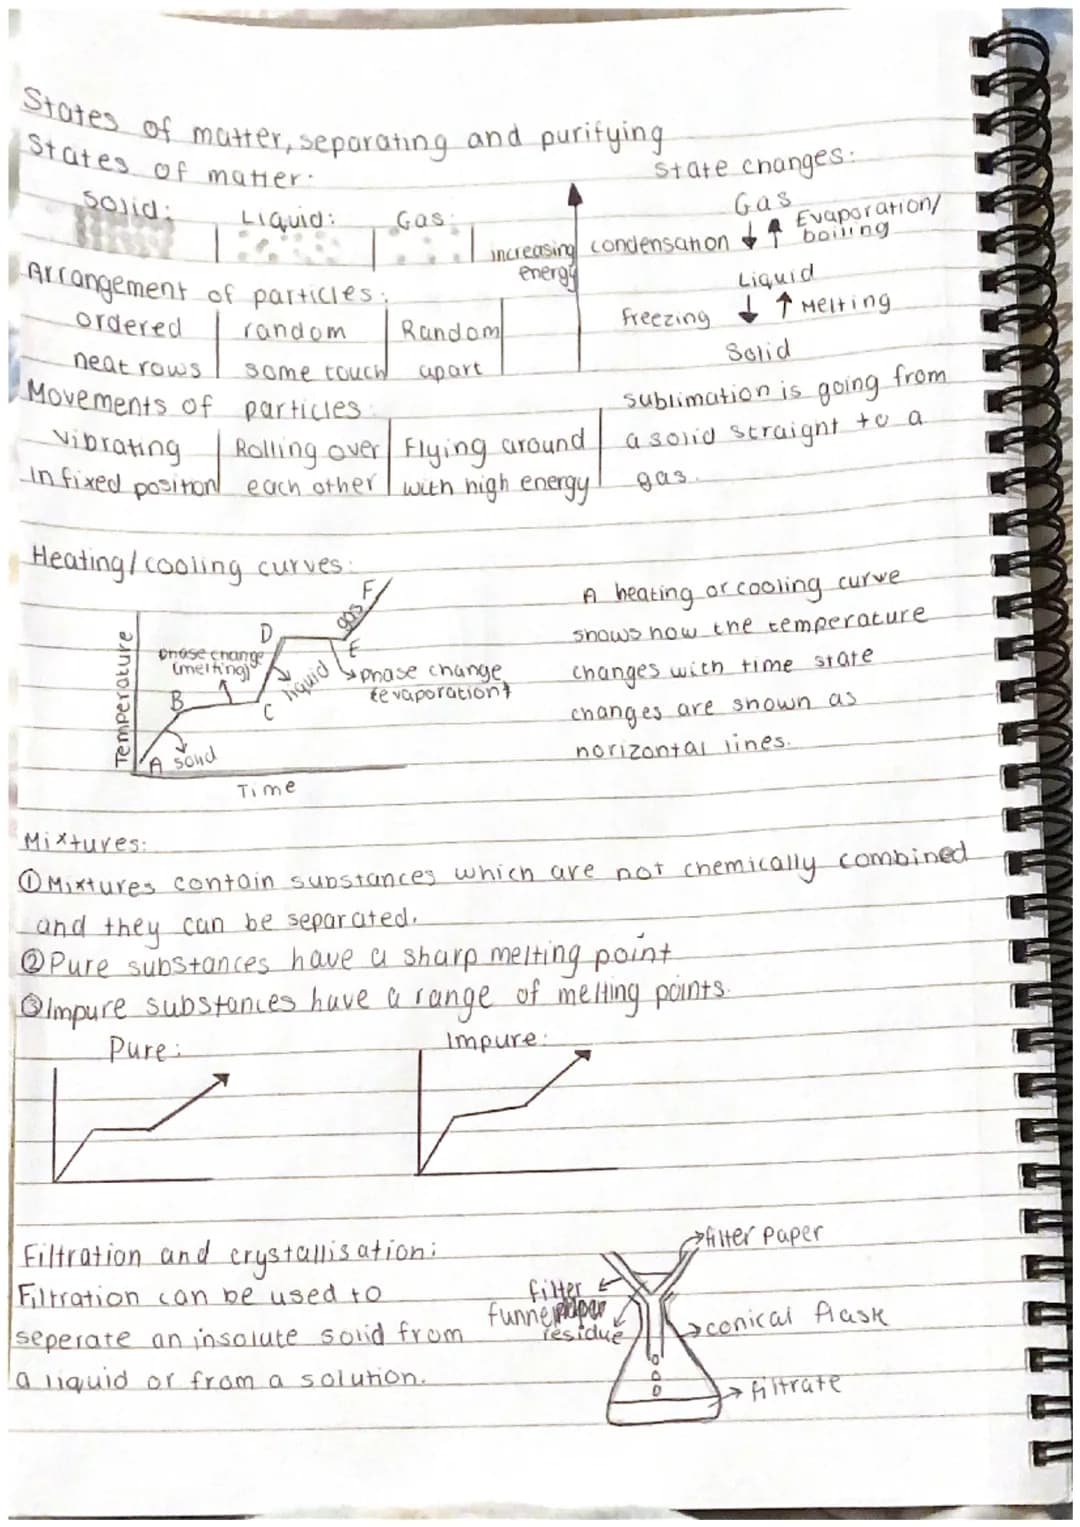 States of matter, separating and purifying
States of matter:
Solid: Liquid: Gas:
Arrangement of particles:
ordered random Random
neat rows some touch apart
Movements of particles
Vibrating Rolling over Flying around
in fixed position each other with high energy
increasing
energy
State changes:
Gas
condensation Evaporation/
boiling
Liquid
freezing Melting
Solid
sublimation is going from
a solid straight to a
gas.
Heating/cooling curves:
Temperature
phase change
(melting)
A solid
B
C
liquid
D
E
gas
F
phase change
(evaporation)
Time
A heating or cooling curve
shows how the temperature
changes with time state
changes are shown as
horizontal lines.
Mixtures:
① Mixtures contain substances which are not chemically combined
and they can be separated.
② Pure substances have a sharp melting point
③ Impure substances have a range of melting points.
Pure: Impure:
Filtration and crystallisation:
Filtration can be used to
seperate an insolute solid from
a liquid or from a solution.
filter paper
filter
funnel
residue
conical flask
filtrate